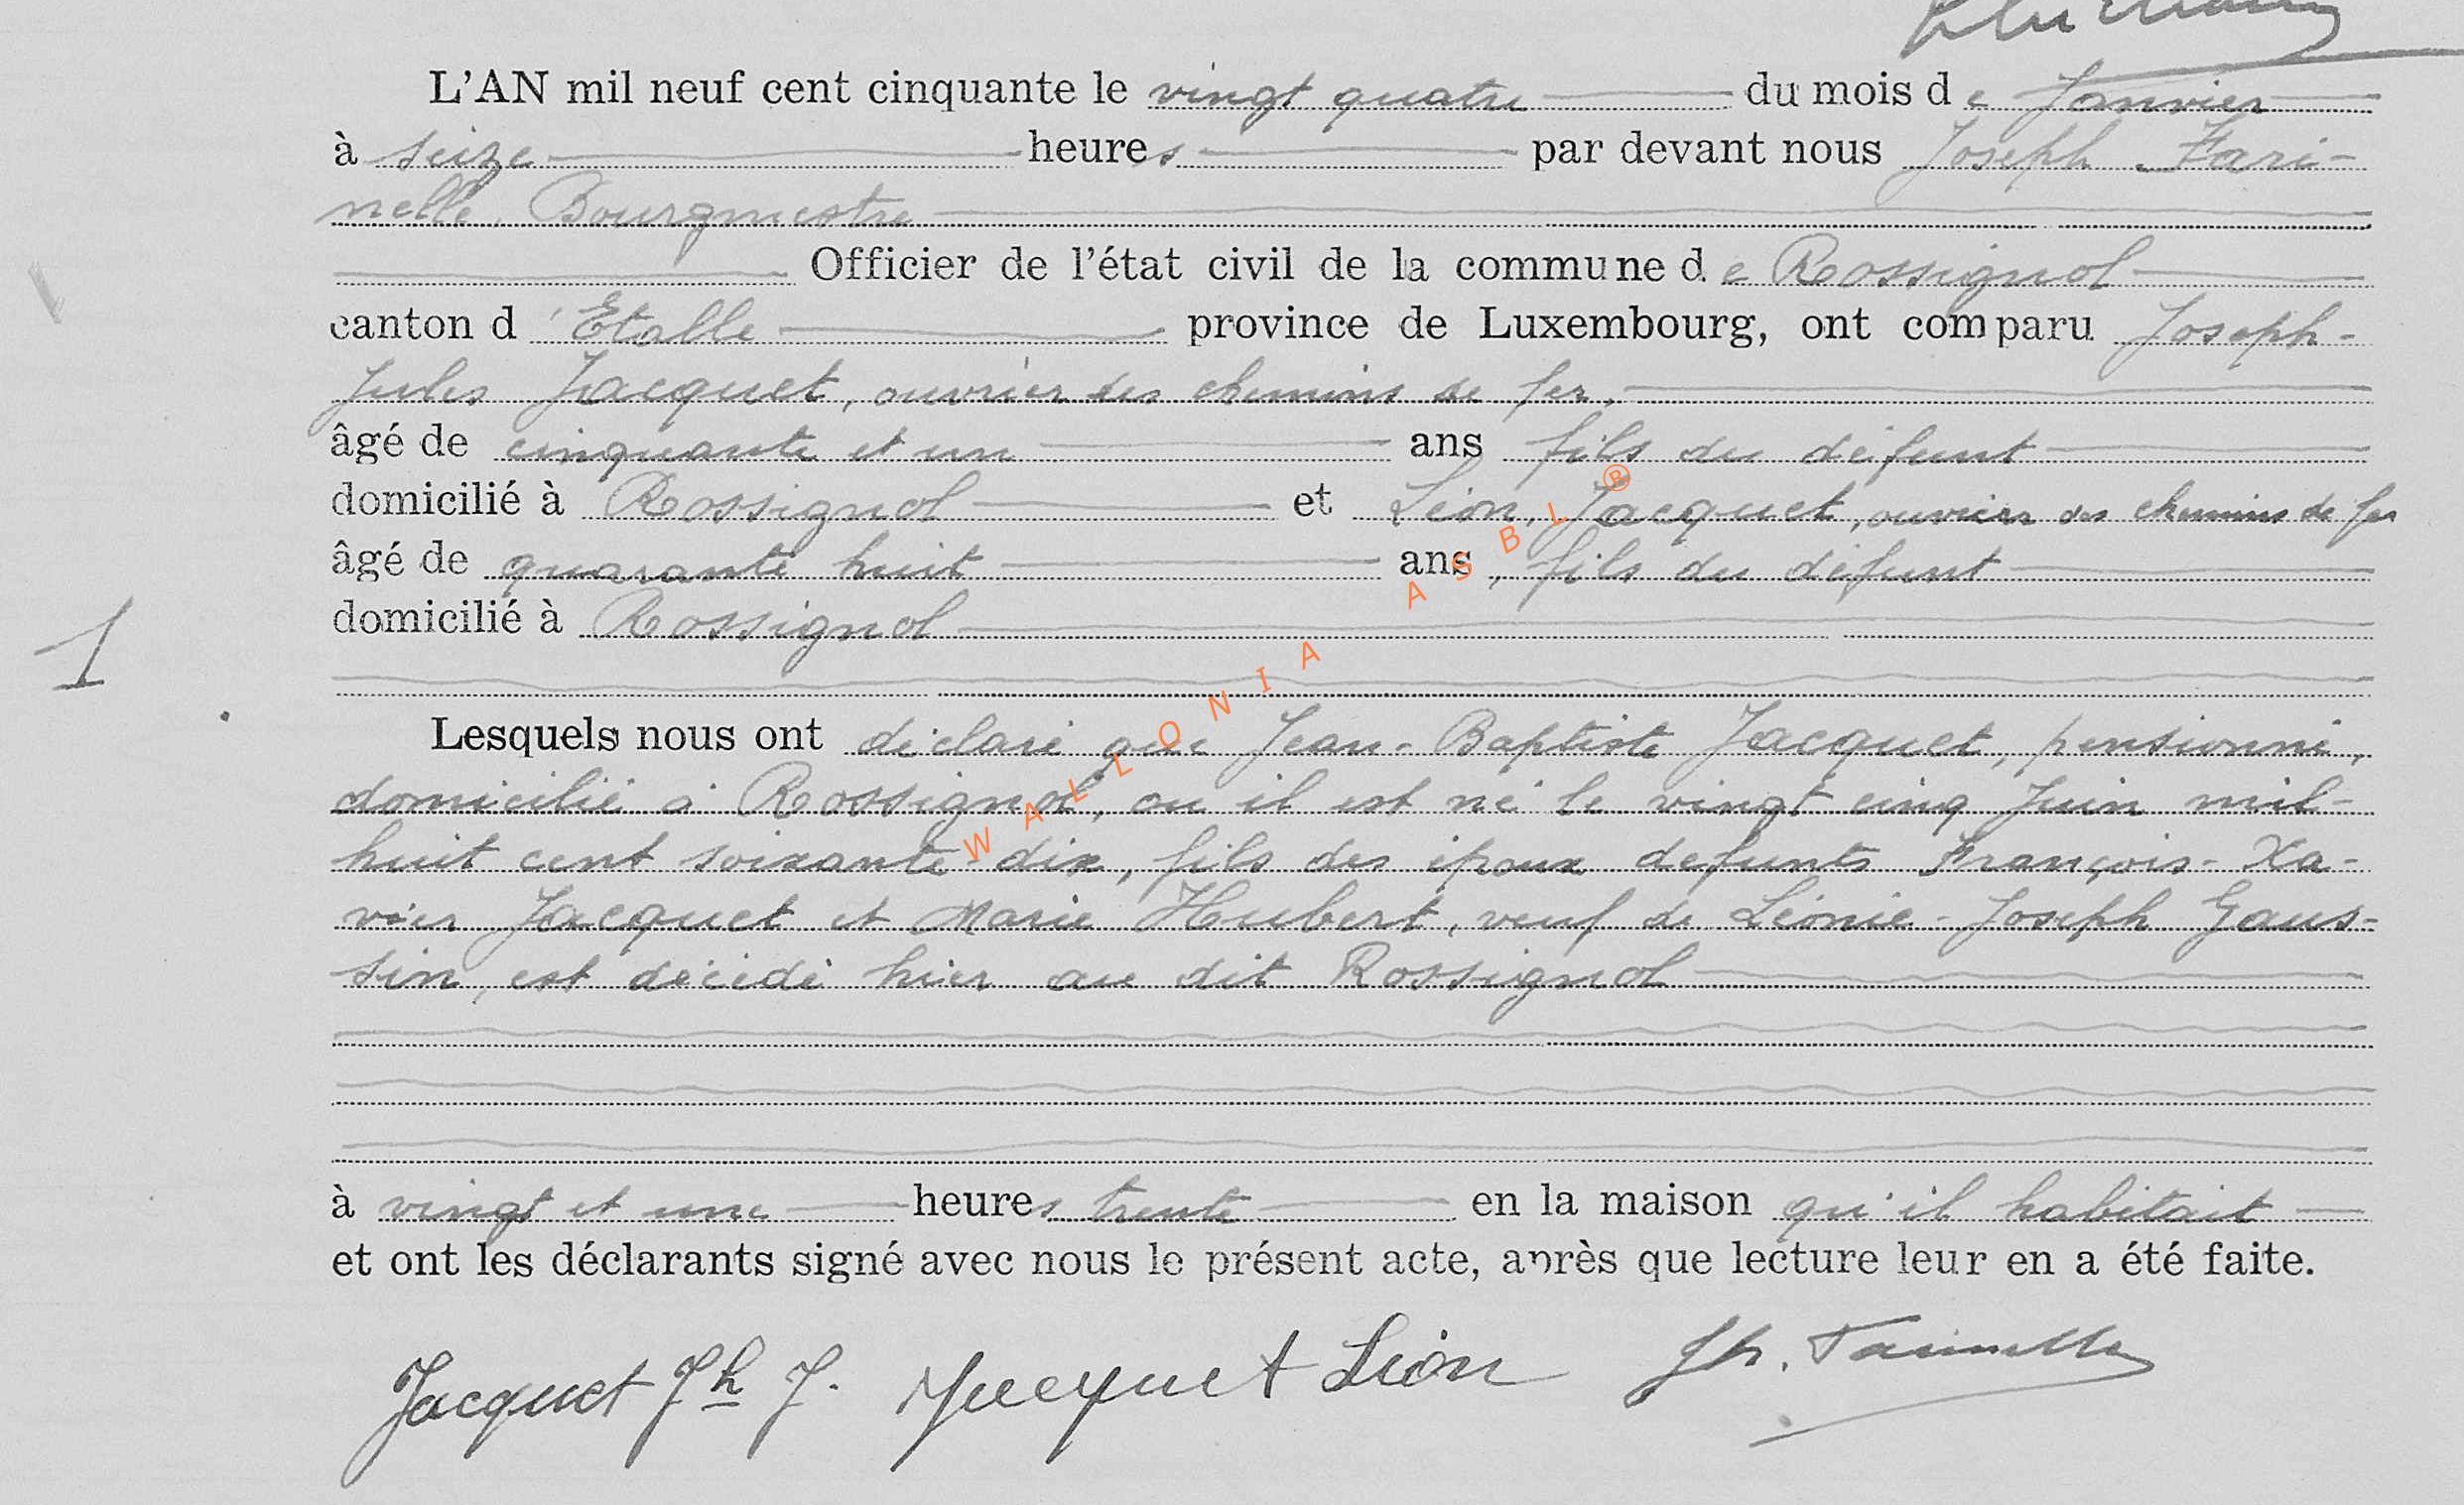 L'AN mil neuf cent cinquante le vingt quatre du mois de Janvier
à seize heures par devant nous Joseph Fari-
nelle, Bourgmestre
Officier de l'état civil de la commune de Rossignol
canton d'Etalle province de Luxembourg, ont comparu Joseph-
Jules Jacquet, ouvrier des chemins de fer,
âgé de cinquante et un ans fils du défunt
domicilié à Rossignol et Léon Jacquet, ouvrier des chemins de fer
âgé de quarante huit ans, fils du défunt
domicilié à Rossignol
1
Lesquels nous ont déclaré que Jean-Baptiste Jacquet, pensionné,
domicilié à Rossignol, ou il est né le vingt cinq Juin mil-
huit cent soixante-dix, fils des époux defunts François-Xa-
vier Jacquet et Marie Hubert, veuf de Léonie-Joseph Gaus-
sin, est décédé hier au dit Rossignol
à vingt et une heures trente en la maison qu'il habitait
et ont les déclarants signé avec nous le présent acte, après que lecture leur en a été faite.
Jacquet Jh J. Jacquet Léon Jh. Farinelle
WALLONIA ASBL ®